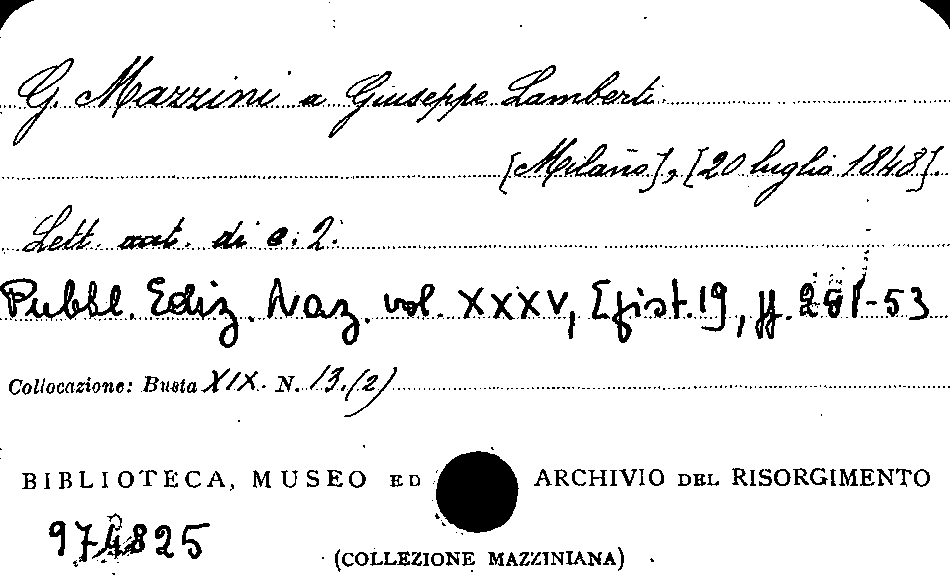 G. Mazzini a Giuseppe Lamberti.
[Milano], [20 luglio 1848].
Lett. aut. di c. 2.
Pubbl. Ediz. Naz. vol. XXXV, [Epist. 19], pp. 251-53
Collocazione: Busta XIX. N. 13.(2)
BIBLIOTECA, MUSEO ED ARCHIVIO DEL RISORGIMENTO
(COLLEZIONE MAZZINIANA)